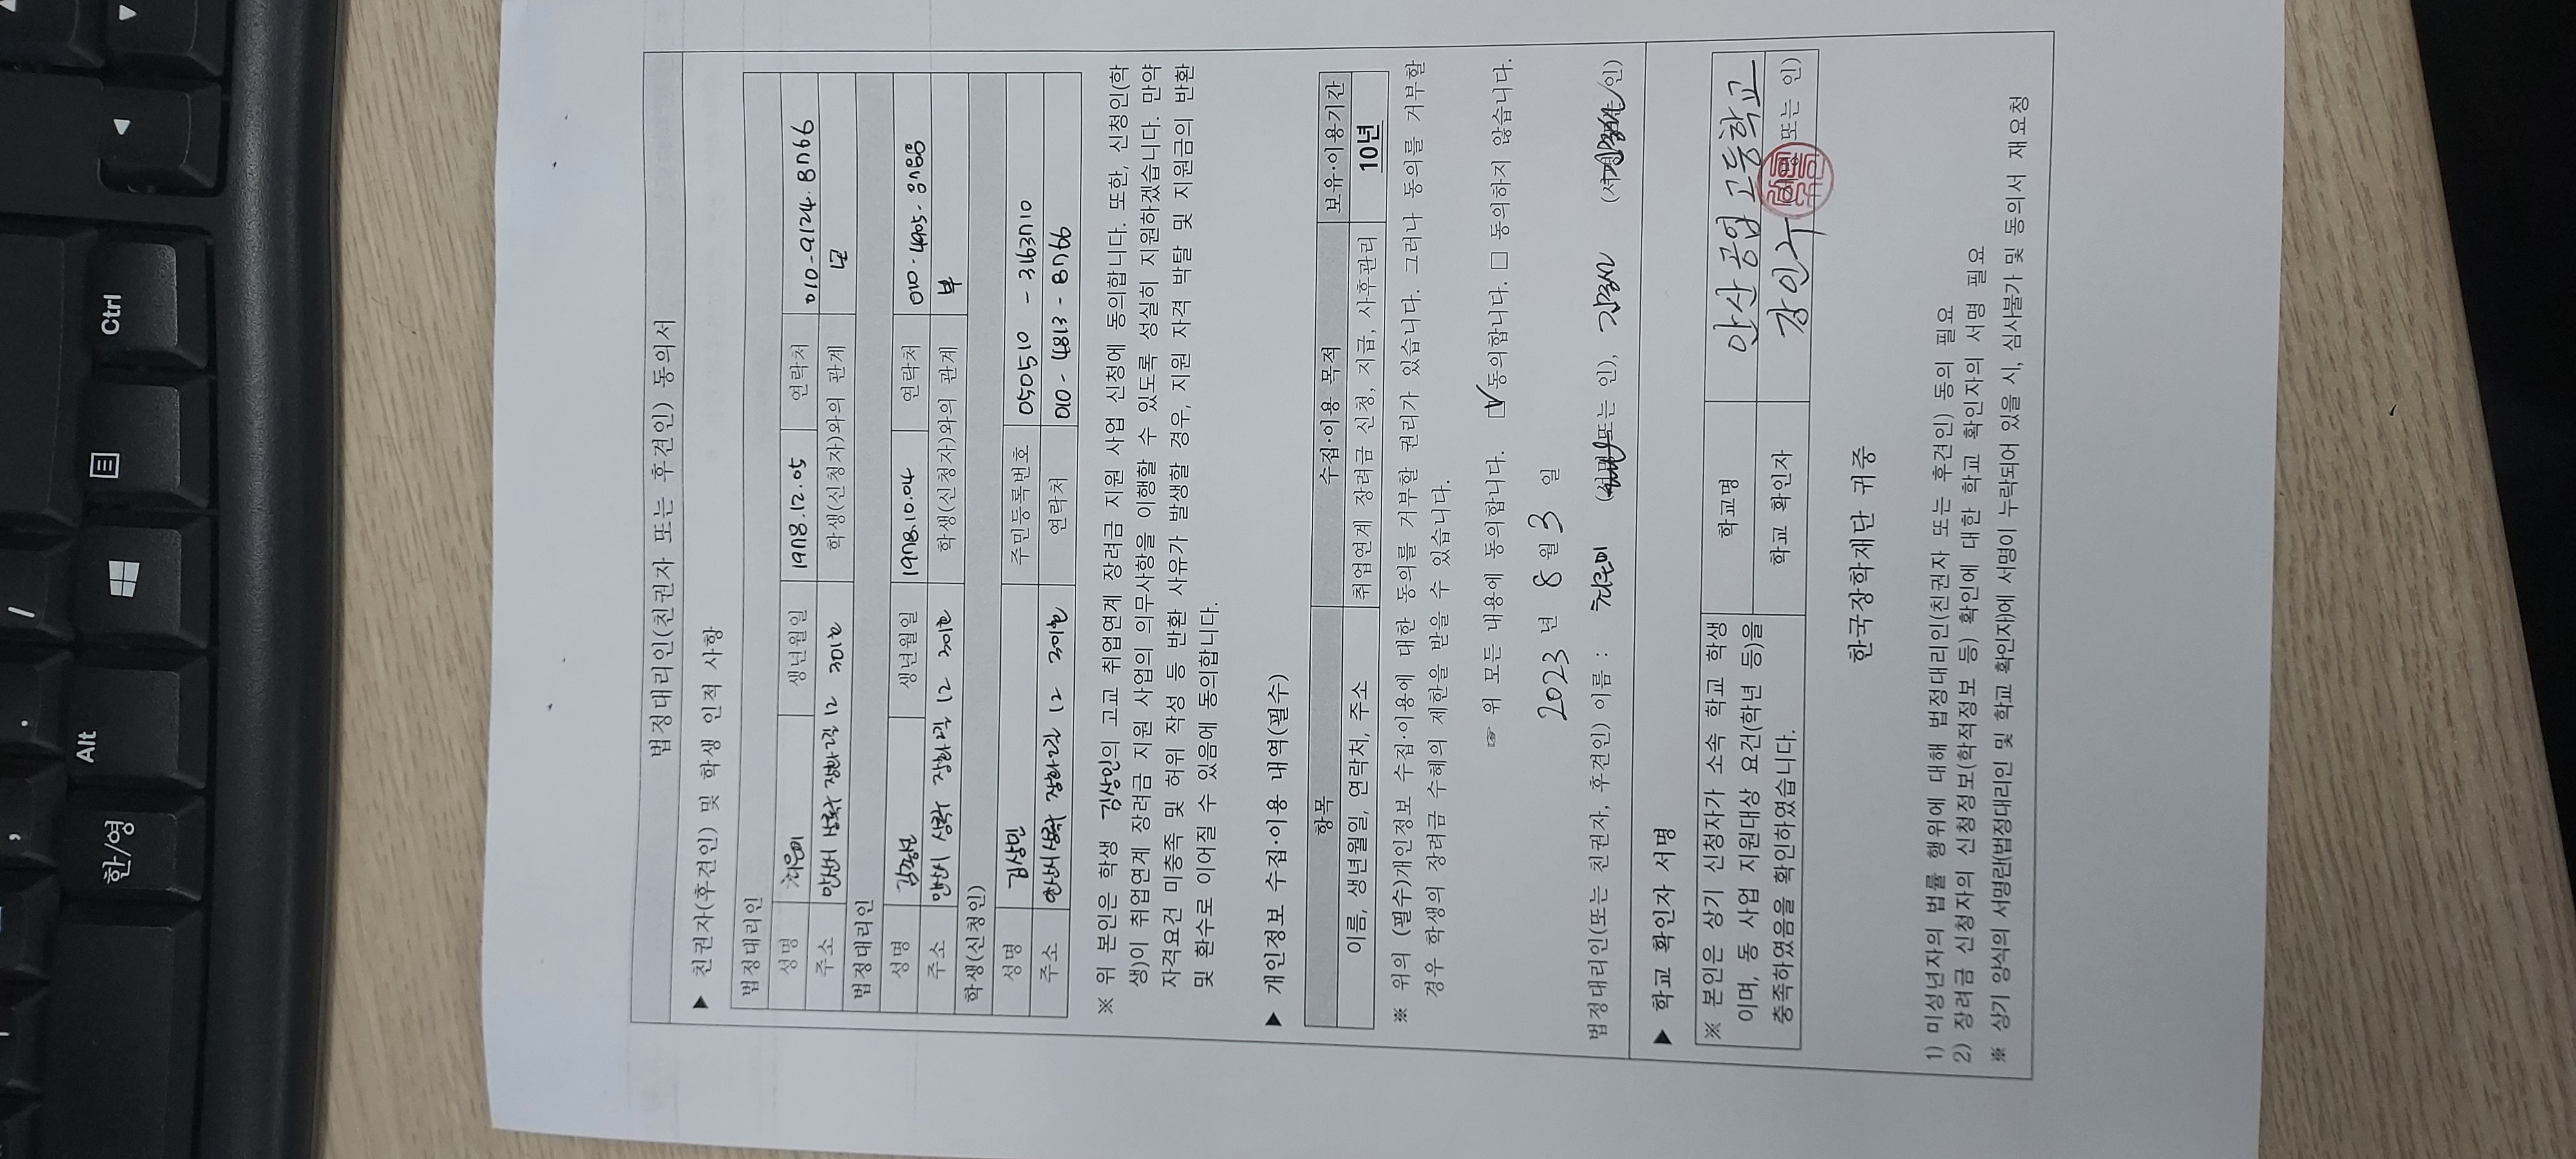 , . /
한/영 Alt Ctrl
법정대리인(친권자 또는 후견인) 동의서
▶ 친권자(후견인) 및 학생 인적 사항
법정대리인
성명 최은미 생년월일 1978.12.05 연락처 010-9124.8766
주소 안산시 상록구 장화2길 12 301호 학생(신청자)와의 관계 모
법정대리인
성명 생년월일 1978.10.04 연락처 010-4905-
주소 안산시 상록구 장화2길 12 301호 학생(신청자)와의 관계 부
학생(신청인)
성명 김상민 주민등록번호 050510 - 3163710
주소 안산시 상록구 장화2길 12 301호 연락처 010 - 4813 - 8766
※ 위 본인은 학생 김상민의 고교 취업연계 장려금 지원 사업 신청에 동의합니다. 또한, 신청인(학
생)이 취업연계 장려금 지원 사업의 의무사항을 이행할 수 있도록 성실히 지원하겠습니다. 만약
자격요건 미충족 및 허위 작성 등 반환 사유가 발생할 경우, 지원 자격 박탈 및 지원금의 반환
및 환수로 이어질 수 있음에 동의합니다.
▶ 개인정보 수집·이용 내역(필수)
항목 수집·이용 목적 보유·이용기간
이름, 생년월일, 연락처, 주소 취업연계 장려금 신청, 지급, 사후관리 10년
※ 위의 (필수)개인정보 수집·이용에 대한 동의를 거부할 권리가 있습니다. 그러나 동의를 거부할
경우 학생의 장려금 수혜의 제한을 받을 수 있습니다.
☞ 위 모든 내용에 동의합니다. ☑ 동의합니다. □ 동의하지 않습니다.
2023 년 8 월 3 일
법정대리인(또는 친권자, 후견인) 이름 : 최은미 (서명 또는 인), (서명 또는 인)
▶ 학교 확인자 서명
※ 본인은 상기 신청자가 소속 학교 학생 학교명 안산공업고등학교
이며, 동 사업 지원대상 요건(학년 등)을
충족하였음을 확인하였습니다. 학교 확인자 강인구 (서명 또는 인)
한국장학재단 귀중
1) 미성년자의 법률 행위에 대해 법정대리인(친권자 또는 후견인) 동의 필요
2) 장려금 신청자의 신청정보(학적정보 등) 확인에 대한 학교 확인자의 서명 필요
※ 상기 양식의 서명란(법정대리인 및 학교 확인자)에 서명이 누락되어 있을 시, 심사불가 및 동의서 재요청